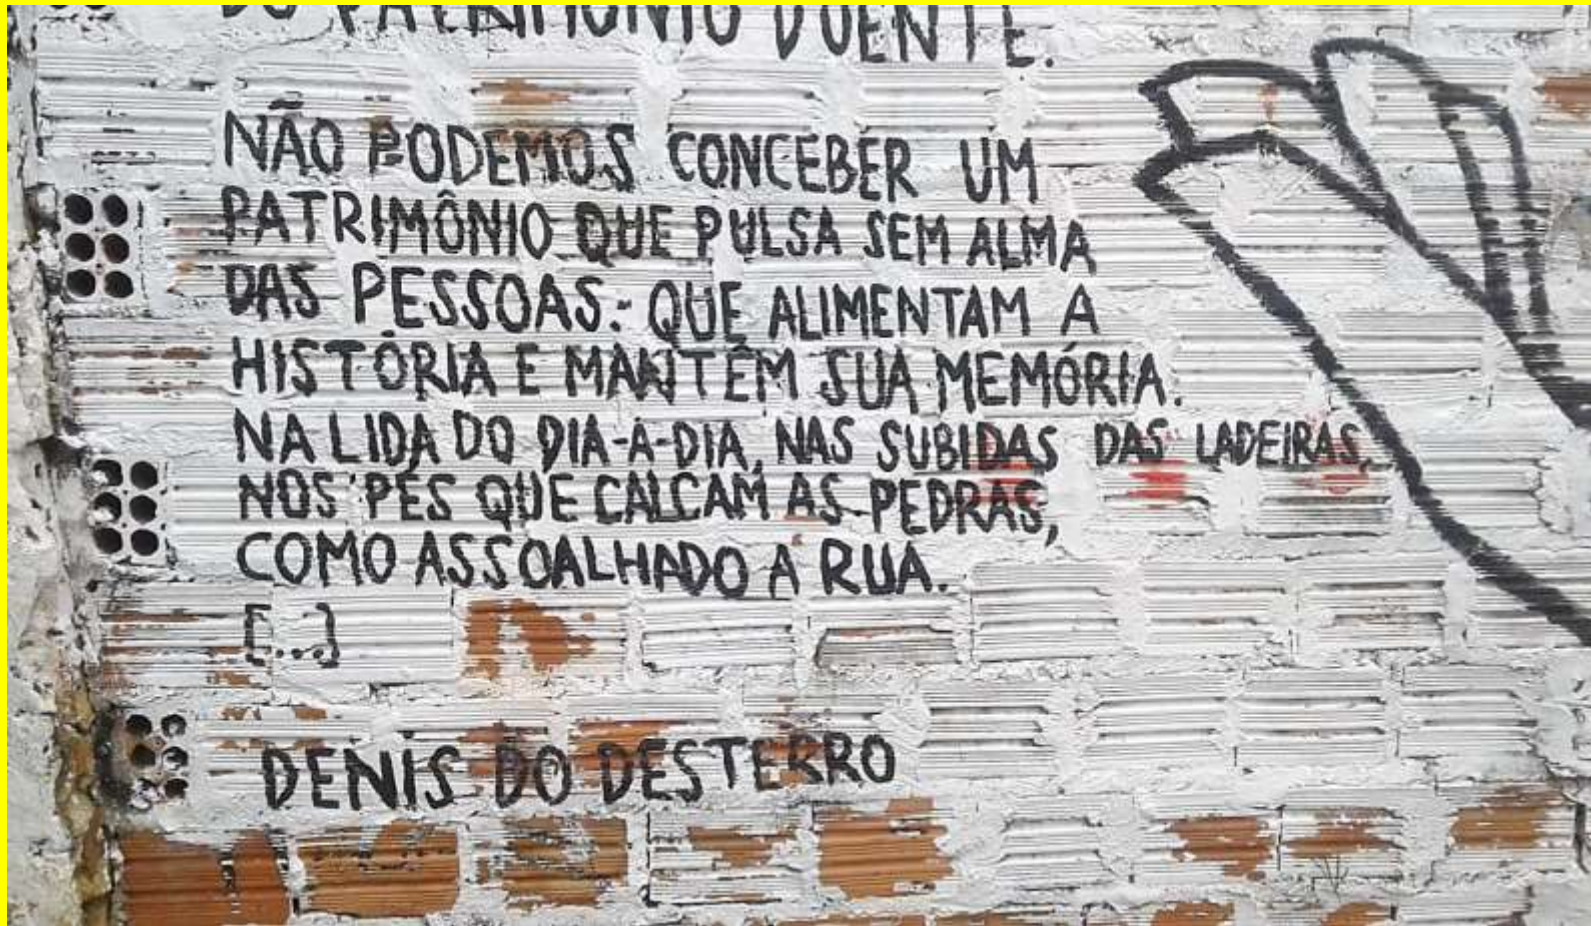 DO PATRIMÔNIO DOENTE.
NÃO PODEMOS CONCEBER UM
PATRIMÔNIO QUE PULSA SEM ALMA
DAS PESSOAS: QUE ALIMENTAM A
HISTÓRIA E MANTÉM SUA MEMÓRIA.
NA LIDA DO DIA-A-DIA, NAS SUBIDAS DAS LADEIRAS,
NOS PÉS QUE CALCAM AS PEDRAS,
COMO ASSOALHADO A RUA.
[...]
DENIS DO DESTERRO